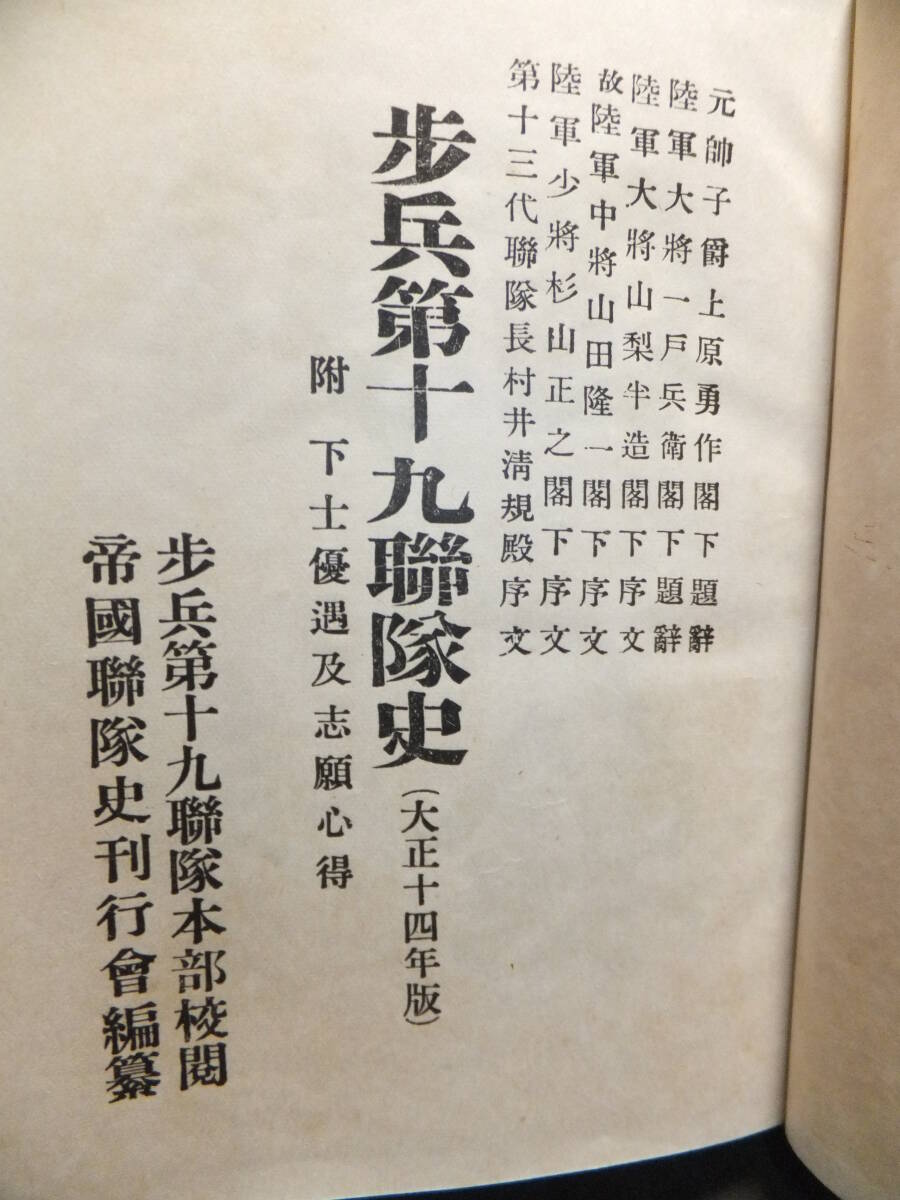 元帥子爵上原勇作閣下題辭
陸軍大將一戶兵衛閣下題辭
陸軍大將山梨半造閣下序文
故陸軍中將山田隆一閣下序文
陸軍少將杉山正之閣下序文
第十三代聯隊長村井淸規殿序文
步兵第十九聯隊史(大正十四年版)
附 下士優遇及志願心得
步兵第十九聯隊本部校閱
帝國聯隊史刊行會編纂